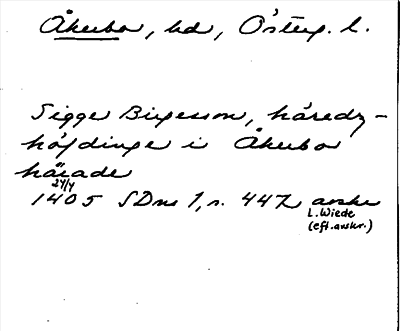 Åkerbo, hd, Österg. l.
Sigge Birgesson, häredz-
höfdinge i Åkerbo
härade
24/4
1405 SDns 1, s. 447 avskr
L. Wiede
(eft. avskr.)